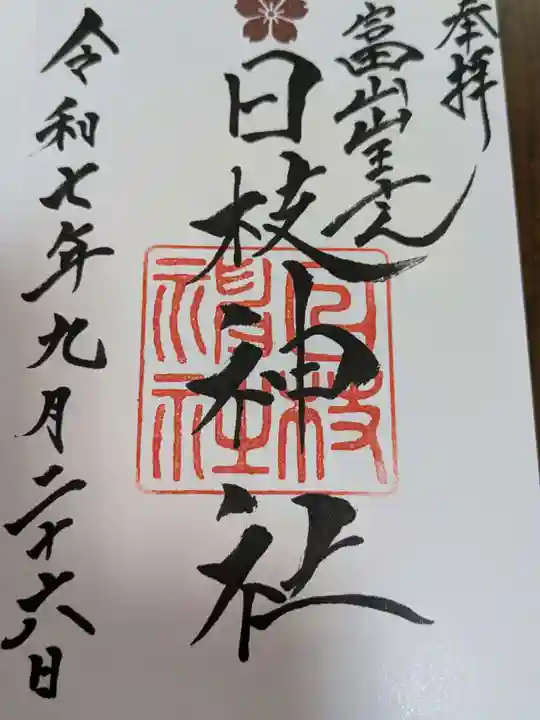 奉拝
富山山王宮
日枝神社
日枝神社
令和七年九月二十六日